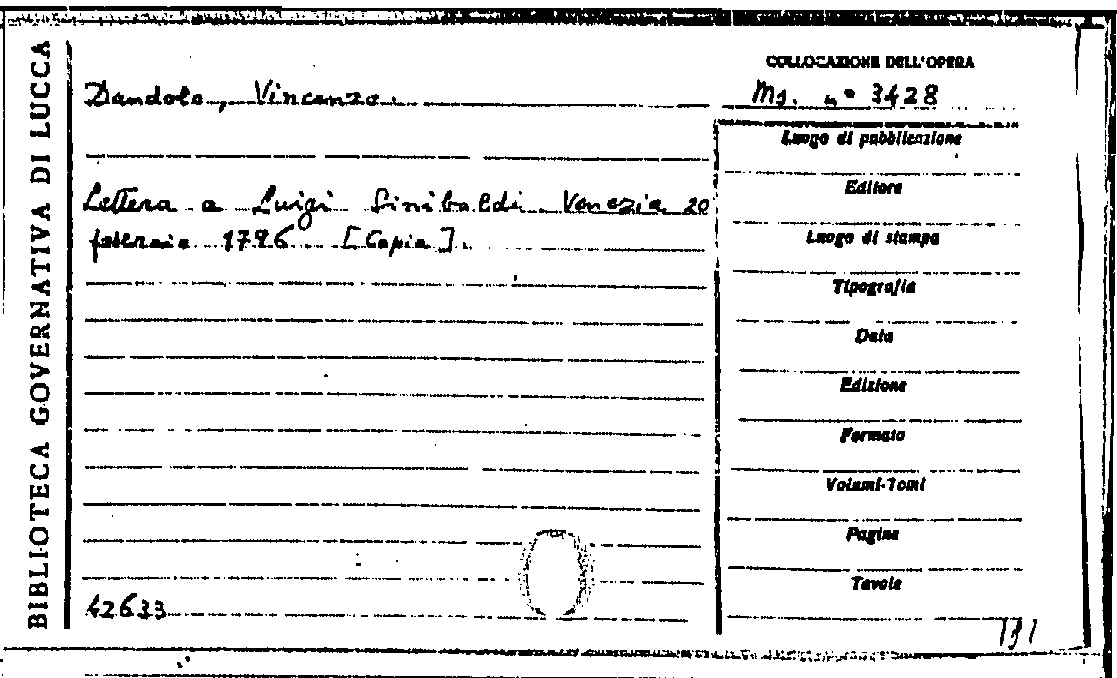 BIBLIOTECA GOVERNATIVA DI LUCCA
COLLOCAZIONE DELL'OPERA
Dandolo, Vincenzo.
Ms. nº 3428
Lettera a Luigi Sinibaldi. Venezia 20
febbraio 1796 [Copia].
Luogo di pubblicazione
Editore
Luogo di stampa
Tipografia
Data
Edizione
Formato
Volumi-Tomi
Pagine
Tavole
42633